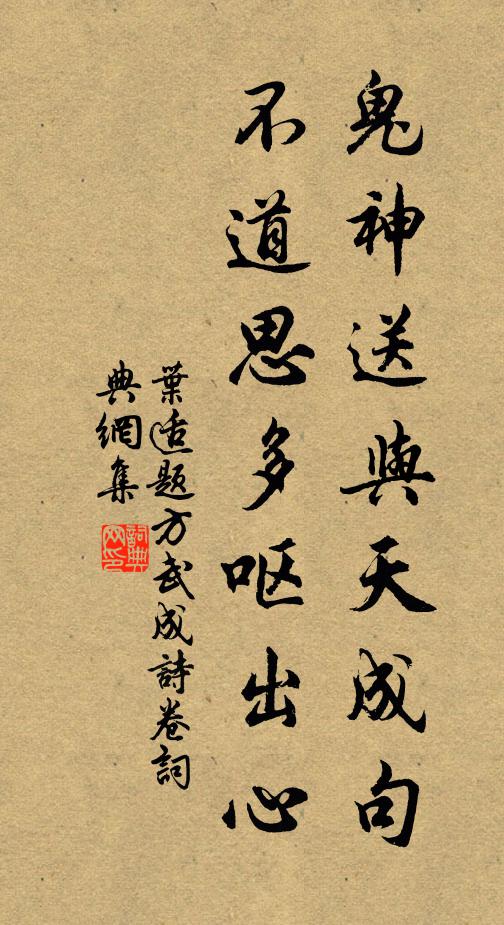 鬼神送與天成句
不道思多呕出心
葉适題方武成詩卷詞
典網集
詞典
网印